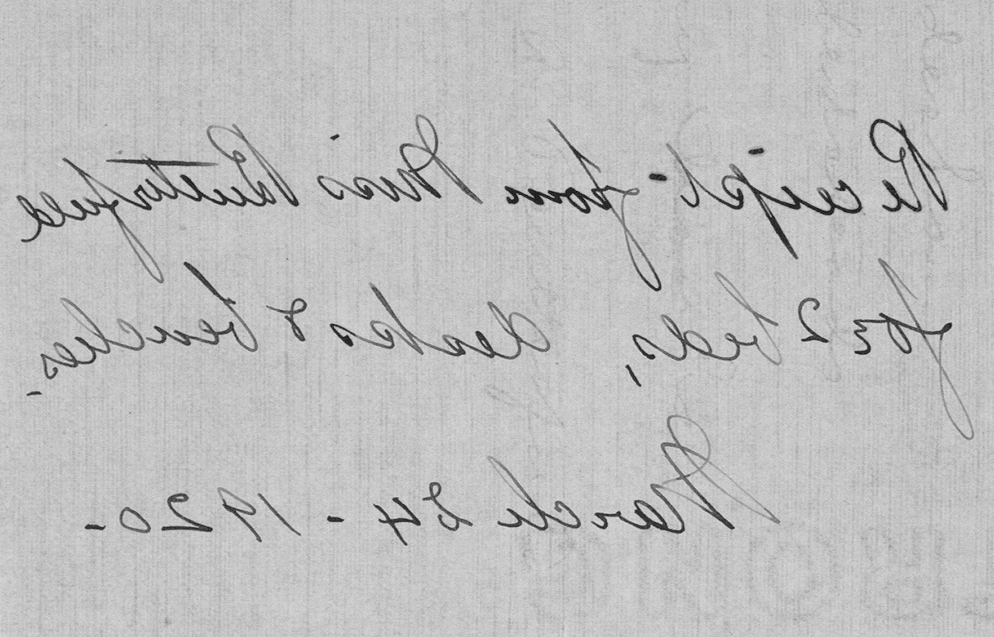 Receipt - from Miss Butterfield
for 2 beds, desks & benches.
March 24 - 1920-